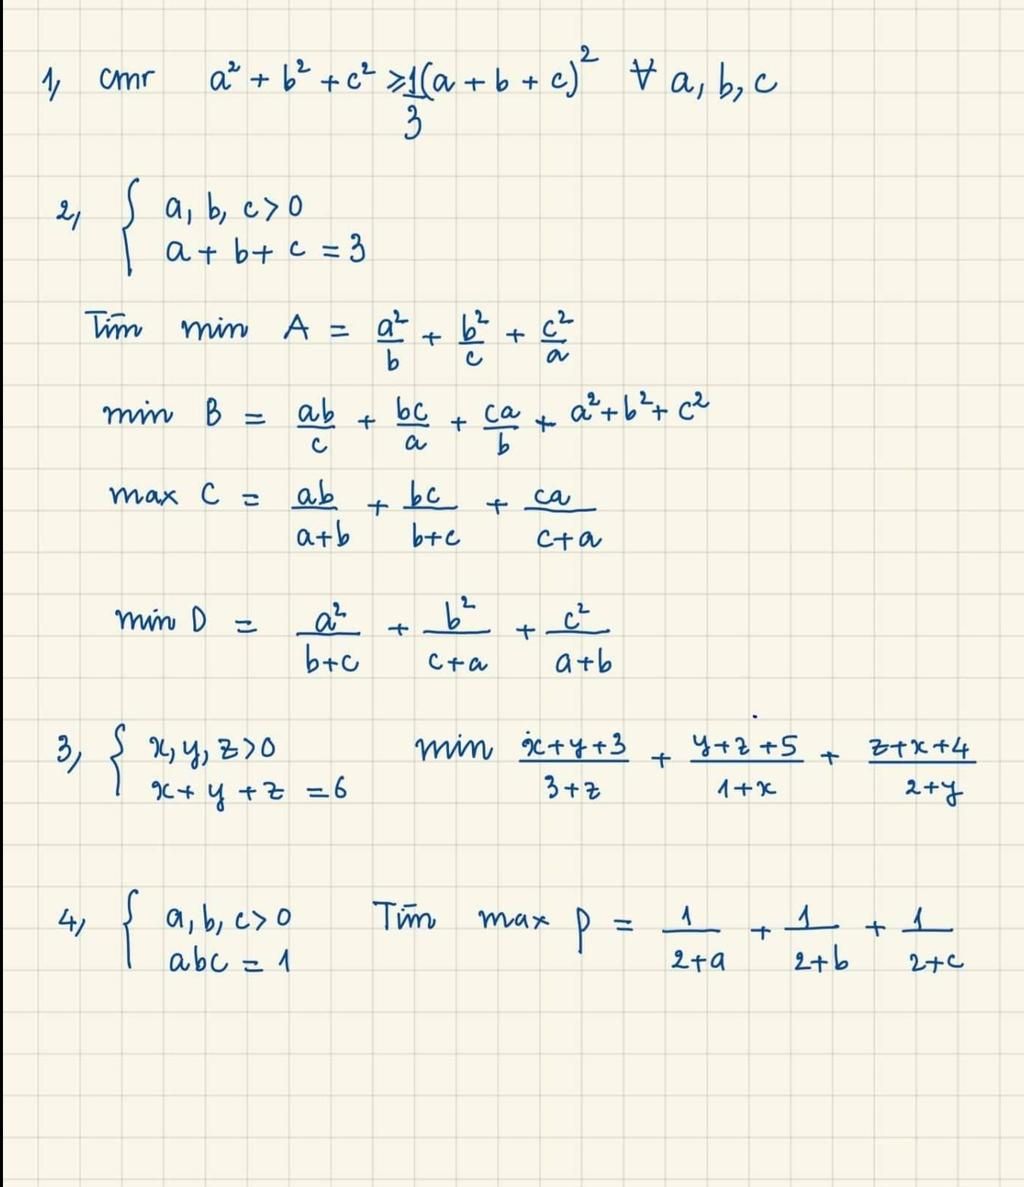 1, cmr a² + b² + c² ≥ 1/3 (a + b + c)² ∀ a, b, c
2, { a, b, c > 0
a + b + c = 3
Tìm min A = a²/b + b²/c + c²/a
min B = ab/c + bc/a + ca/b + a² + b² + c²
max C = ab/(a+b) + bc/(b+c) + ca/(c+a)
min D = a²/(b+c) + b²/(c+a) + c²/(a+b)
3, { x, y, z > 0 min (x+y+3)/(3+z) + (y+z+5)/(1+x) + (z+x+4)/(2+y)
x + y + z = 6
4, { a, b, c > 0 Tìm max P = 1/(2+a) + 1/(2+b) + 1/(2+c)
abc = 1